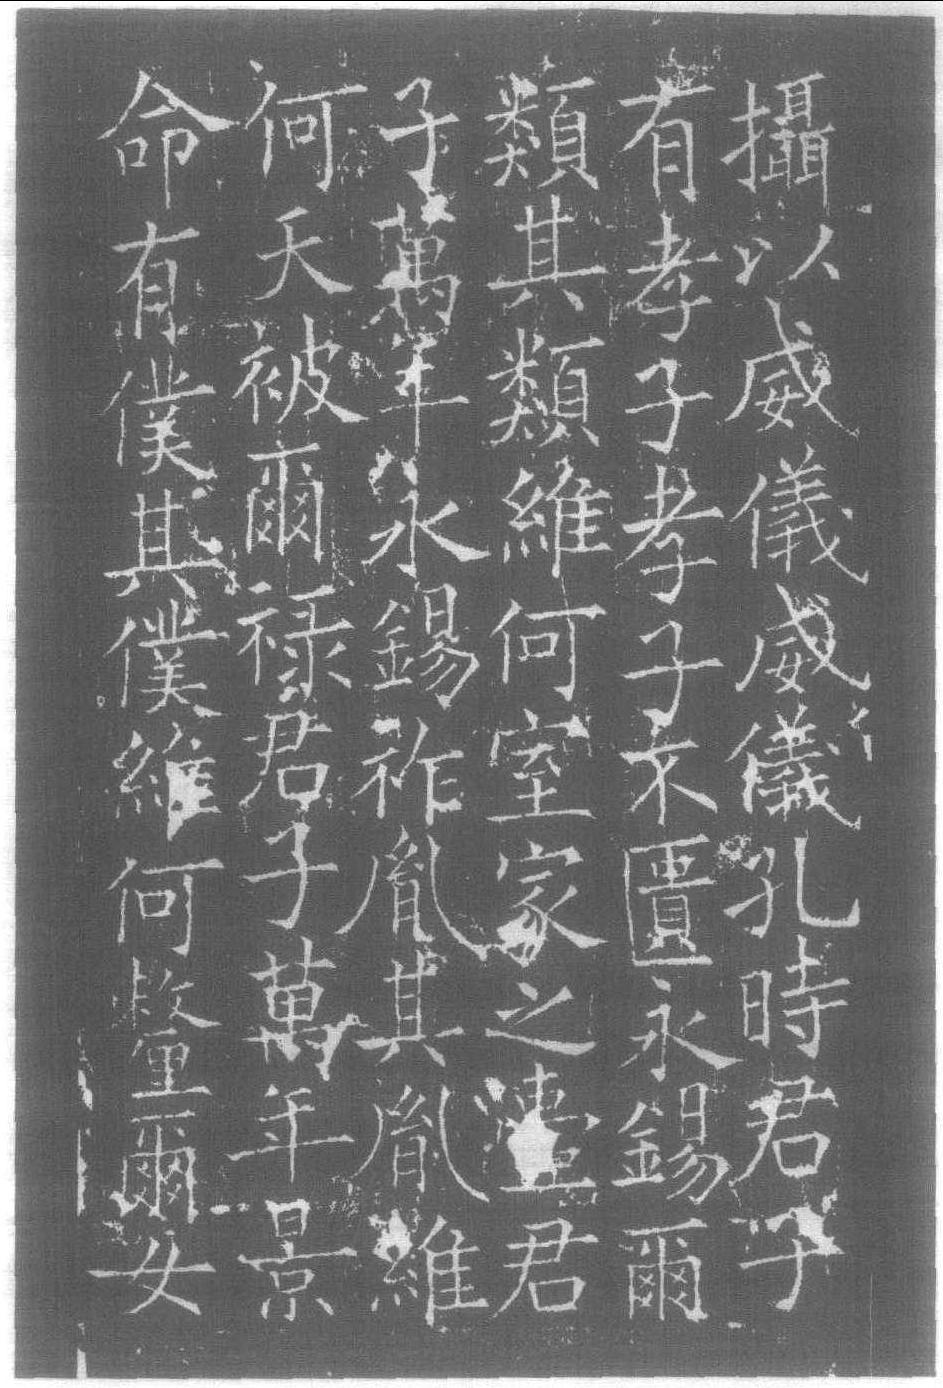 攝以威儀威儀孔時君子
有孝子孝子不匱永錫爾
類其類維何室家之壼君
子萬年永錫祚胤其胤維
何天被爾禄君子萬年景
命有僕其僕維何釐爾女